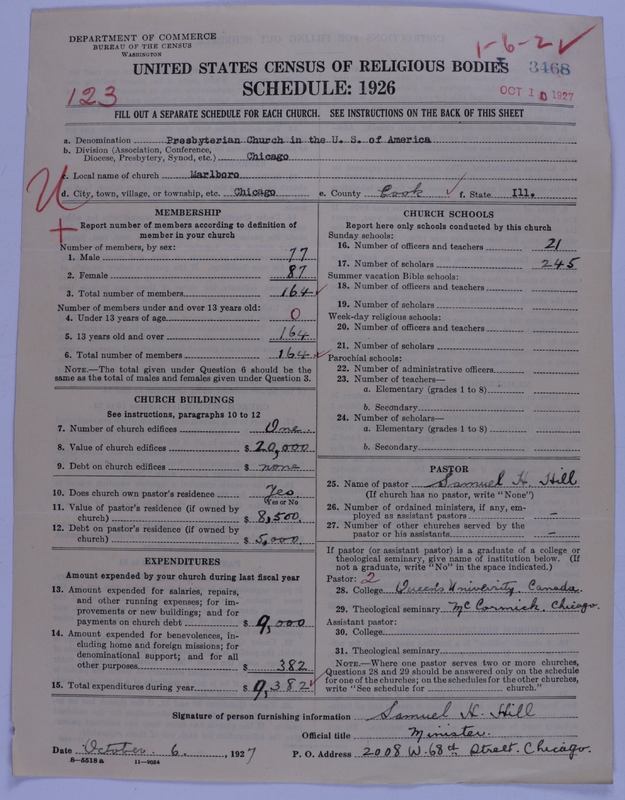 DEPARTMENT OF COMMERCE
BUREAU OF THE CENSUS
WASHINGTON
1-6-2
UNITED STATES CENSUS OF RELIGIOUS BODIES
3468
SCHEDULE: 1926
123
OCT 10 1927
FILL OUT A SEPARATE SCHEDULE FOR EACH CHURCH. SEE INSTRUCTIONS ON THE BACK OF THIS SHEET
a. Denomination Presbyterian Church in the U. S. of America
b. Division (Association, Conference,
Diocese, Presbytery, Synod, etc.) Chicago
c. Local name of church Marlboro
d. City, town, village, or township, etc. Chicago e. County Cook f. State Ill.
MEMBERSHIP
Report number of members according to definition of
member in your church
Number of members, by sex:
1. Male 77
2. Female 87
3. Total number of members 164
Number of members under and over 13 years old:
4. Under 13 years of age 0
5. 13 years old and over 164
6. Total number of members 164
NOTE.—The total given under Question 6 should be
same as the total of males and females given under Question 3.
CHURCH BUILDINGS
See instructions, paragraphs 10 to 12
7. Number of church edifices One
8. Value of church edifices $ 20,000
9. Debt on church edifices $ none
10. Does church own pastor's residence Yes
Yes or No
11. Value of pastor's residence (if owned by
church) $ 8,500
12. Debt on pastor's residence (if owned by
church) $ 5,000
EXPENDITURES
Amount expended by your church during last fiscal year
13. Amount expended for salaries, repairs,
and other running expenses; for im-
provements or new buildings; and for
payments on church debt $ 9,000
14. Amount expended for benevolences, in-
cluding home and foreign missions; for
denominational support; and for all
other purposes $ 382
15. Total expenditures during year $ 9,382
CHURCH SCHOOLS
Report here only schools conducted by this church
Sunday schools:
16. Number of officers and teachers 21
17. Number of scholars 245
Summer vacation Bible schools:
18. Number of officers and teachers
19. Number of scholars
Week-day religious schools:
20. Number of officers and teachers
21. Number of scholars
Parochial schools:
22. Number of administrative officers
23. Number of teachers—
a. Elementary (grades 1 to 8)
b. Secondary
24. Number of scholars—
a. Elementary (grades 1 to 8)
b. Secondary
PASTOR
25. Name of pastor Samuel H. Hill
(If church has no pastor, write "None")
26. Number of ordained ministers, if any, em-
ployed as assistant pastors –
27. Number of other churches served by the
pastor or his assistants –
If pastor (or assistant pastor) is a graduate of a college or
theological seminary, give name of institution below. (If
not a graduate, write "No" in the space indicated.)
Pastor: 2
28. College Queen's University, Canada
29. Theological seminary McCormick, Chicago.
Assistant pastor:
30. College
31. Theological seminary
NOTE.—Where one pastor serves two or more churches,
Questions 28 and 29 should be answered only on the schedule
for one of the churches; on the schedules for the other churches,
write "See schedule for church."
Signature of person furnishing information Samuel H. Hill
Official title Minister.
Date October 6, 1927 P. O. Address 2008 W. 68th Street. Chicago.
8—5518 a 11—9034